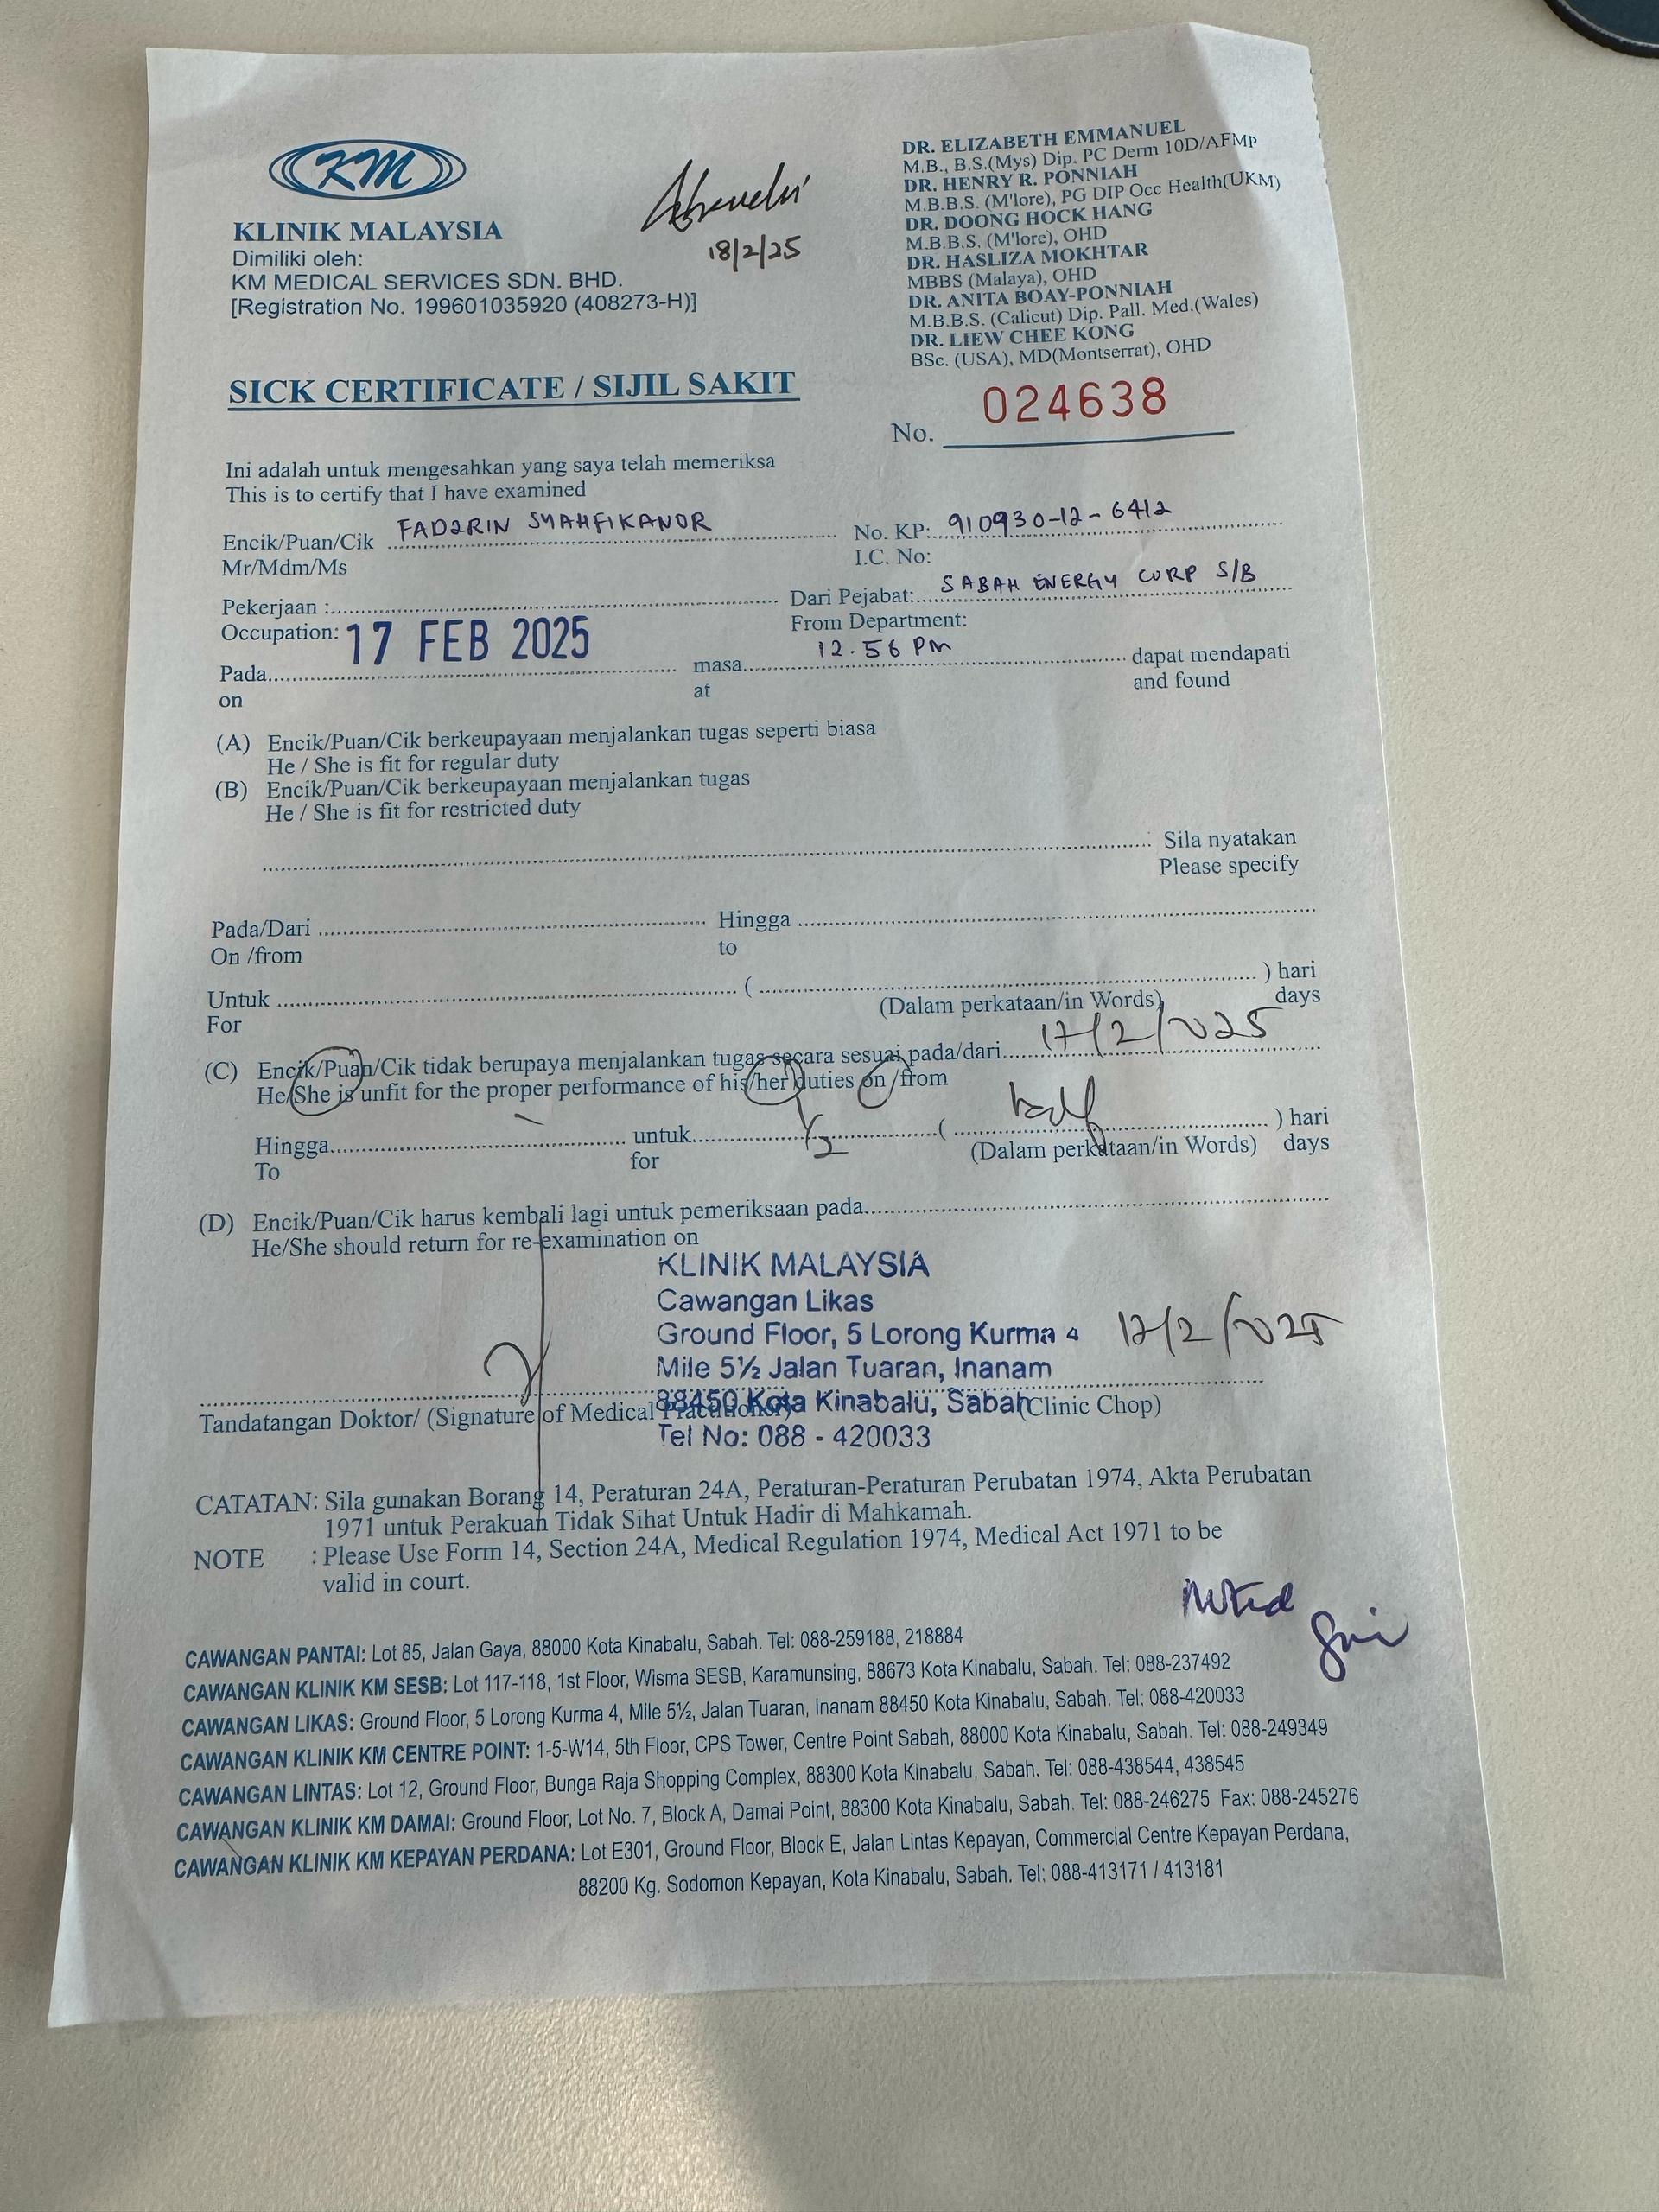 KM
KLINIK MALAYSIA
Dimiliki oleh:
KM MEDICAL SERVICES SDN. BHD.
[Registration No. 199601035920 (408273-H)]
18/2/25
DR. ELIZABETH EMMANUEL
M.B., B.S.(Mys) Dip. PC Derm 10D/AFMP
DR. HENRY R. PONNIAH
M.B.B.S. (M'lore), PG DIP Occ Health(UKM)
DR. DOONG HOCK HANG
M.B.B.S. (M'lore), OHD
DR. HASLIZA MOKHTAR
MBBS (Malaya), OHD
DR. ANITA BOAY-PONNIAH
M.B.B.S. (Calicut) Dip. Pall. Med.(Wales)
DR. LIEW CHEE KONG
BSc. (USA), MD(Montserrat), OHD
SICK CERTIFICATE / SIJIL SAKIT
No. 024638
Ini adalah untuk mengesahkan yang saya telah memeriksa
This is to certify that I have examined
Encik/Puan/Cik FADZRIN SYAHFIKANOR No. KP: 910930-12-6412
Mr/Mdm/Ms I.C. No:
Pekerjaan : Dari Pejabat: SABAH ENERGY CORP S/B
Occupation: From Department:
Pada 17 FEB 2025 masa 12.56 PM dapat mendapati
on at and found
(A) Encik/Puan/Cik berkeupayaan menjalankan tugas seperti biasa
He / She is fit for regular duty
(B) Encik/Puan/Cik berkeupayaan menjalankan tugas
He / She is fit for restricted duty
Sila nyatakan
Please specify
Pada/Dari Hingga
On /from to
Untuk ( ) hari
For (Dalam perkataan/in Words) days
(C) Encik/Puan/Cik tidak berupaya menjalankan tugas secara sesuai pada/dari 17/2/2025
He/She is unfit for the proper performance of his/her duties on /from
Hingga - untuk 1/2 ( half ) hari
To for (Dalam perkataan/in Words) days
(D) Encik/Puan/Cik harus kembali lagi untuk pemeriksaan pada
He/She should return for re-examination on
KLINIK MALAYSIA
Cawangan Likas
Ground Floor, 5 Lorong Kurma 4
Mile 5½ Jalan Tuaran, Inanam
88450 Kota Kinabalu, Sabah
Tel No: 088 - 420033
17/2/2025
Tandatangan Doktor/ (Signature of Medical Practitioner) (Clinic Chop)
CATATAN: Sila gunakan Borang 14, Peraturan 24A, Peraturan-Peraturan Perubatan 1974, Akta Perubatan
1971 untuk Perakuan Tidak Sihat Untuk Hadir di Mahkamah.
NOTE : Please Use Form 14, Section 24A, Medical Regulation 1974, Medical Act 1971 to be
valid in court.
Noted
CAWANGAN PANTAI: Lot 85, Jalan Gaya, 88000 Kota Kinabalu, Sabah. Tel: 088-259188, 218884
CAWANGAN KLINIK KM SESB: Lot 117-118, 1st Floor, Wisma SESB, Karamunsing, 88673 Kota Kinabalu, Sabah. Tel: 088-237492
CAWANGAN LIKAS: Ground Floor, 5 Lorong Kurma 4, Mile 5½, Jalan Tuaran, Inanam 88450 Kota Kinabalu, Sabah. Tel: 088-420033
CAWANGAN KLINIK KM CENTRE POINT: 1-5-W14, 5th Floor, CPS Tower, Centre Point Sabah, 88000 Kota Kinabalu, Sabah. Tel: 088-249349
CAWANGAN LINTAS: Lot 12, Ground Floor, Bunga Raja Shopping Complex, 88300 Kota Kinabalu, Sabah. Tel: 088-438544, 438545
CAWANGAN KLINIK KM DAMAI: Ground Floor, Lot No. 7, Block A, Damai Point, 88300 Kota Kinabalu, Sabah. Tel: 088-246275 Fax: 088-245276
CAWANGAN KLINIK KM KEPAYAN PERDANA: Lot E301, Ground Floor, Block E, Jalan Lintas Kepayan, Commercial Centre Kepayan Perdana,
88200 Kg. Sodomon Kepayan, Kota Kinabalu, Sabah. Tel: 088-413171 / 413181